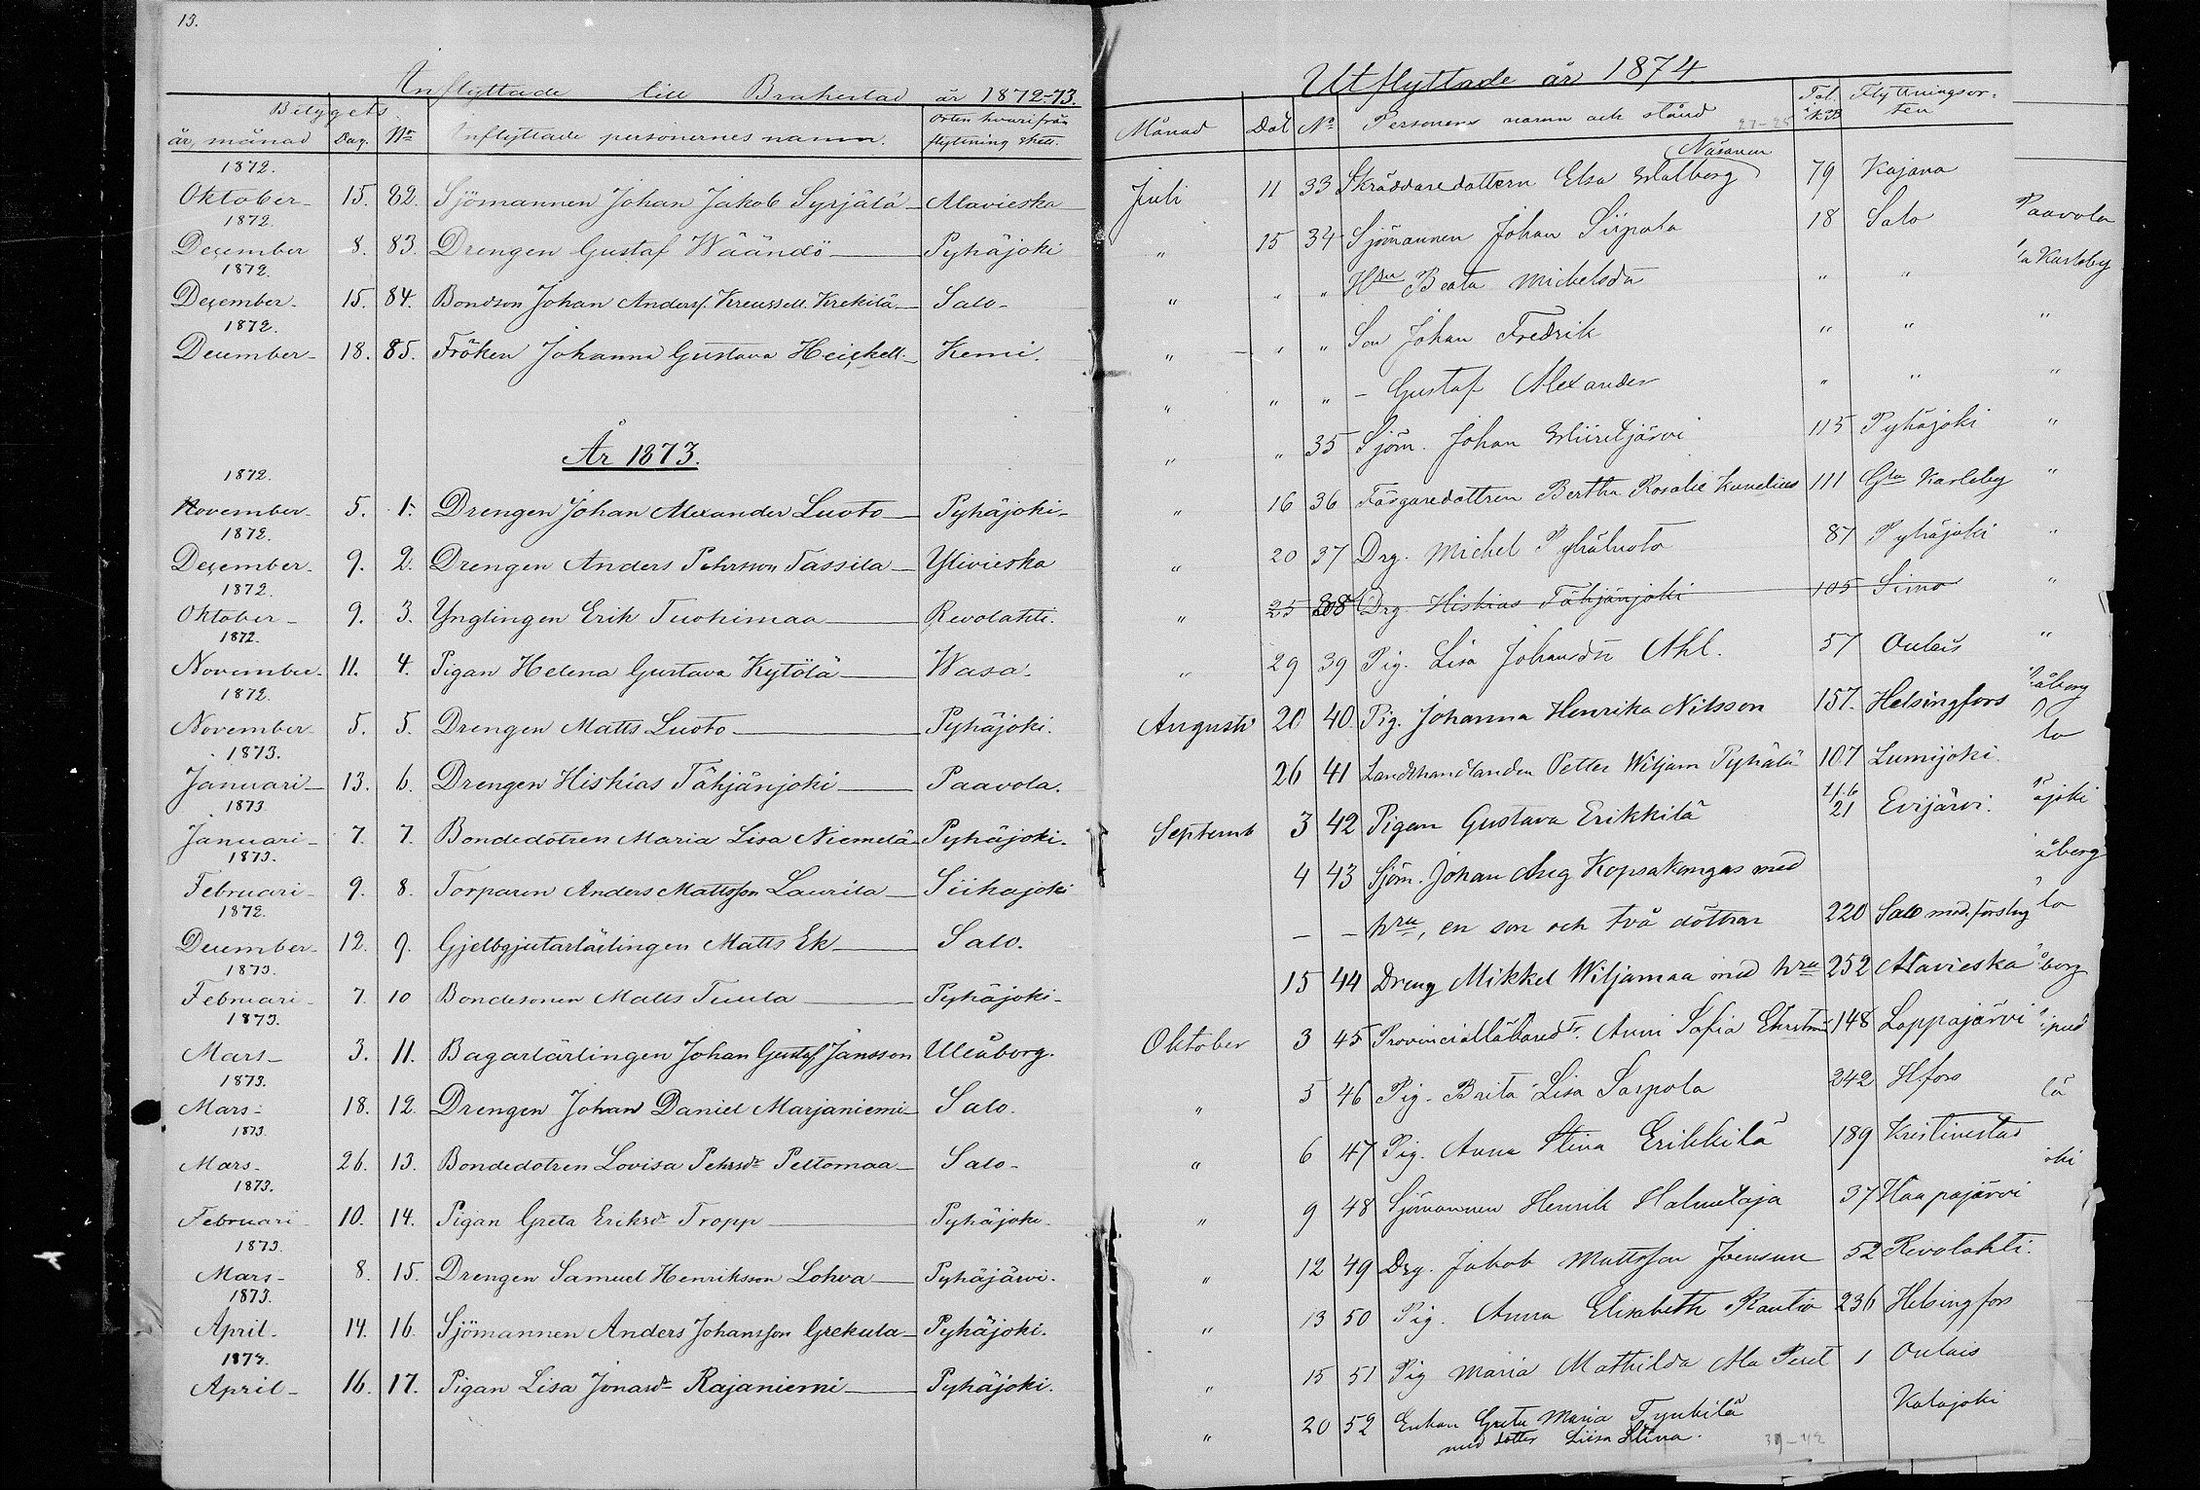 13.
Inflyttade till Brahestad år 1872-73.
Betygets
år, månad Dag. No Inflyttade personernes namn. Orten hvarifrån flyttning skett.
1872.
Oktober 15. 82. Sjömannen Johan Jakob Syrjälä Alavieska
1872.
December 8. 83. Drengen Gustaf Wäändö Pyhäjoki
1872.
December. 15. 84. Bondson Johan Andersf. Krekilä Salo
1872.
December 18. 85. Fröken Johanna Gustava Heickell Kemi.
År 1873.
1872.
November 5. 1. Drengen Johan Alexander Luoto Pyhäjoki
1872.
December 9. 2. Drengen Anders Pehrsson Tassila Ylivieska
1872.
Oktober 9. 3. Ynglingen Erik Tuohimaa Revolahti.
1872.
November. 11. 4. Pigan Helena Gustava Kytölä Wasa.
1872.
November 5. 5. Drengen Matts Luoto Pyhäjoki.
1873.
Januari 13. 6. Drengen Hiskias Tähjänjoki Paavola.
1873
Januari 7. 7. Bondedotren Maria Lisa Niemelä Pyhäjoki.
1873.
Februari 9. 8. Torparen Anders Mattsson Laurila Siikajoki
1872.
December 12. 9. Gjelbgjutarlärlingen Matts Ek Salo.
1873.
Februari 7. 10 Bondesonen Matts Tuula Pyhäjoki
1873.
Mars 3. 11. Bagarlärlingen Johan Gustaf Jansson Uleåborg.
1873.
Mars 18. 12. Drengen Johan Daniel Marjaniemi Salo.
1873.
Mars 26. 13. Bondedotren Lovisa Pehrsdr Peltomaa Salo
1873.
Februari 10. 14. Pigan Greta Eriksdr Tropp Pyhäjoki.
1873.
Mars 8. 15. Drengen Samuel Henriksson Lohva Pyhäjärvi.
1873.
April. 14. 16. Sjömannen Anders Johansson Grekula Pyhäjoki.
1873.
April 16. 17. Pigan Lisa Jonasdr Rajaniemi Pyhäjoki.
Utflyttade år 1874
Månad Dat No Personens namn och stånd 27-25 Pal. i KB Flyttningsorten
Juli 11 33 Skräddaredottern Elsa Malberg (Näsänen 79 Kajana
" 15 34 Sjömannen Johan Siipola 18 Salo
" " " Hru Beata Michelsdr " "
" " " Son Johan Fredrik " "
" " " - Gustaf Alexander " "
" " 35 Sjöm. Johan 115 Pyhäjoki
" 16 36 Färgaredottren Bertha Rosalie Kunelius 111 Gla Karleby
" 20 37 Drg. Michel Pyhäluoto 87 Pyhäjoki
" 25 38 Drg. Hiskias Tähjänjoki 105 Simo
" 29 39 Pig. Lisa Johansdr Ahl. 57 Oulais
Augusti 20 40. Pig. Johanna Henrika Nilsson 157. Helsingfors
26 41 Landthandlanden Petter Wiljam Pyhälä 107 Lumijoki.
Septemb 3 42 Pigan Gustava Erikkilä 21 Evijärvi.
4 43 Sjöm. Johan Aug Kopsakangas med
- - hru, en son och två döttrar 220 Salo
15 44 Dreng Mikkel Wiljamaa med hru 252 Alavieska
Oktober 3 45 Provincialläkaredr. Anni Sofia Ehrström 148 Lappajärvi
" 5 46 Pig. Brita Lisa Sarpola 242 Hfors
" 6 47 Pig. Anna Stina Erikkilä 189 Kristinestad
" 9 48 Sjömannen Henrik Halmetoja 37 Haapajärvi
" 12 49 Drg. Jakob Mattsson Joensuu 52 Revolahti.
" 13 50 Pig. Anna Elisabeth Rautio 236 Helsingfors
" 15 51 Pig Maria Mathilda Ala Peret 1 Oulais
" 20 52 Enkan Greta Maria Tynkilä Kalajoki
med dotter Liisa Stina. 39-42
Paavola
la Karleby